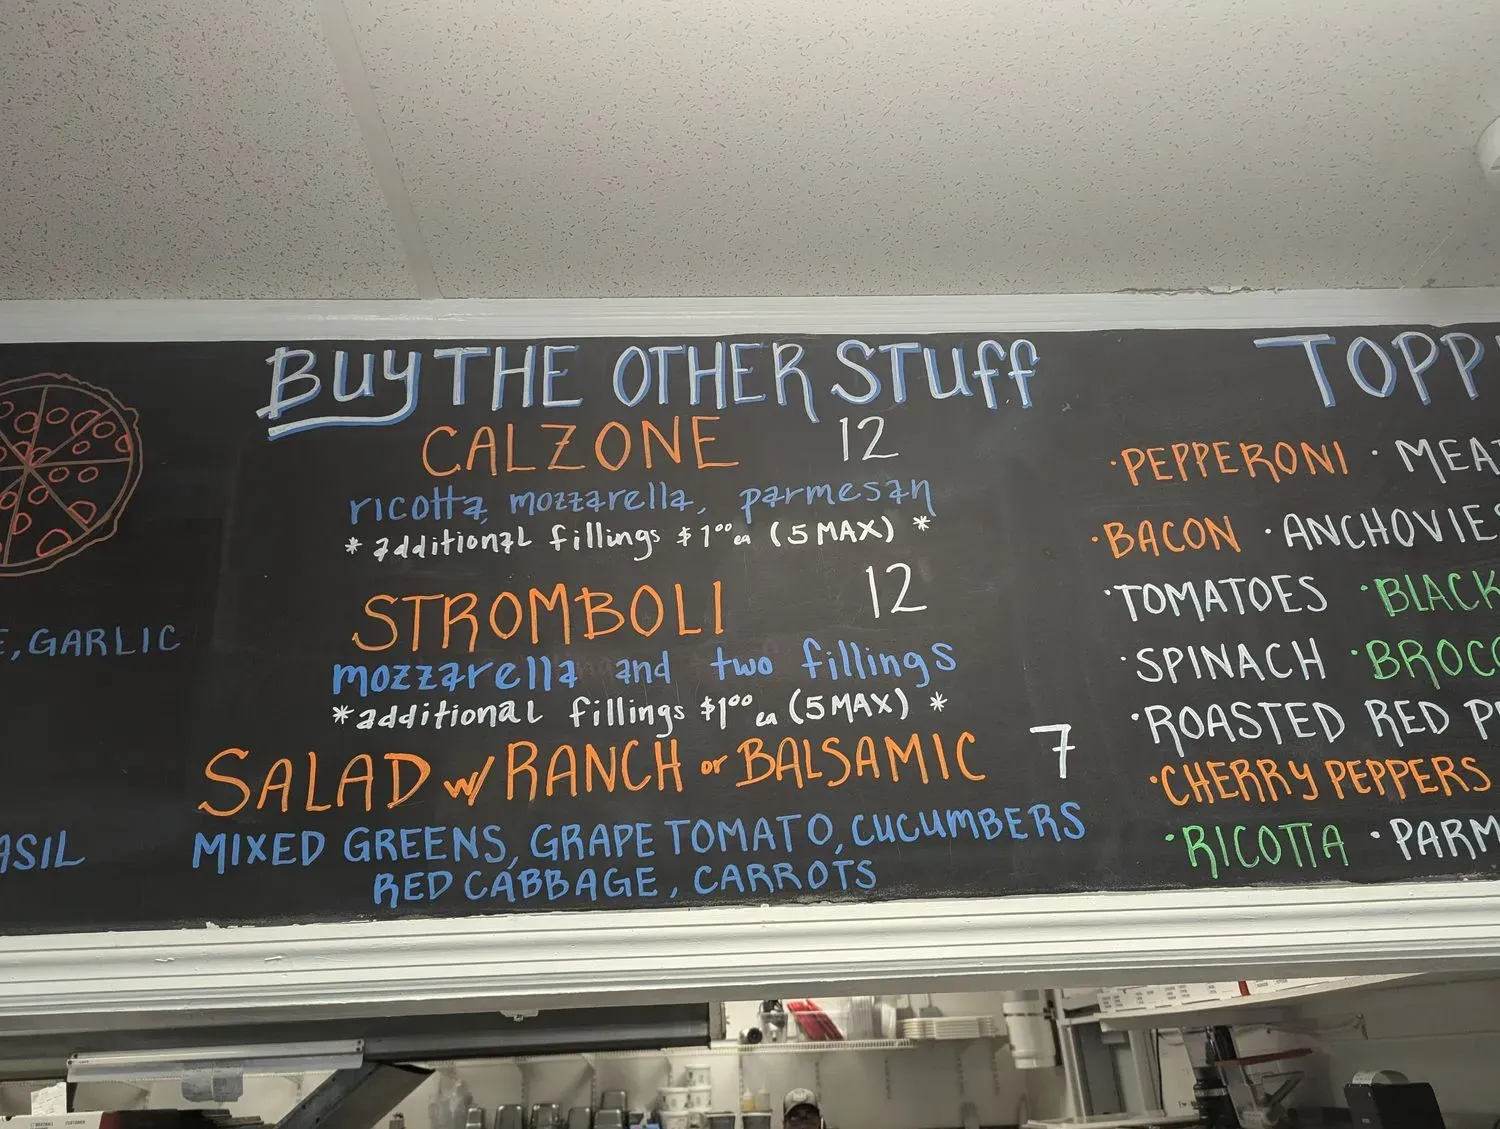 BUY THE OTHER STUFF
CALZONE 12
ricotta, mozzarella, parmesan
* additional fillings $1.00 ea (5 MAX) *
STROMBOLI 12
mozzarella and two fillings
*additional fillings $1.00 ea (5 MAX) *
SALAD w/ RANCH or BALSAMIC 7
MIXED GREENS, GRAPE TOMATO, CUCUMBERS
RED CABBAGE, CARROTS
E, GARLIC
ASIL
TOPP
·PEPPERONI ·MEAT
·BACON ·ANCHOVIES
·TOMATOES ·BLACK
·SPINACH ·BROCC
·ROASTED RED P
·CHERRY PEPPERS
·RICOTTA ·PARM